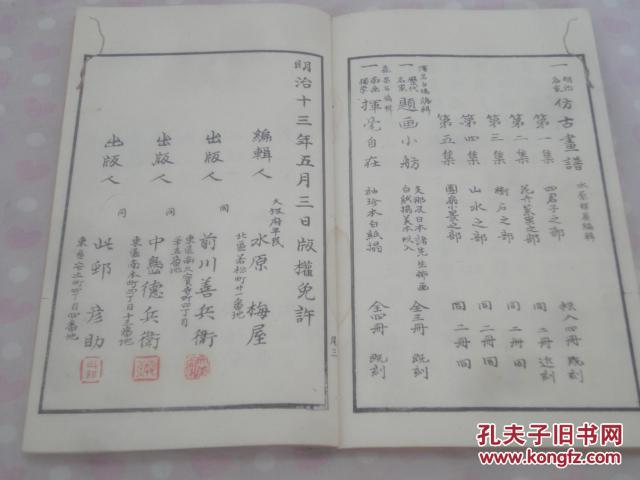 一 明治名家 仿古畫譜 水原梅屋編輯
第一集 四君子之部 帙入四冊 既刻
第二集 花卉菓蔬之部 同二冊 近刻
第三集 樹石之部 同二冊
第四集 山水之部 同二冊
第五集 團扇小景之部 同二冊
一 歷代名家 題画小舫 支那及日本諸先生 白紙摺美本 全三冊 既刻
一 南画獨學 揮毫自在 袖珍本白紙摺 全四冊 既刻
尾三
明治十三年五月三日版權免許
編輯人 大坂府平民 水原梅屋
出版人 同 前川善兵衛
東區南久寶寺町四丁目
出版人 同 中島德兵衛
東區南本町四丁目十三番地
出版人 同 此邨彦助
東區安土町四丁目四番地
孔夫子旧书网
www.kongfz.com